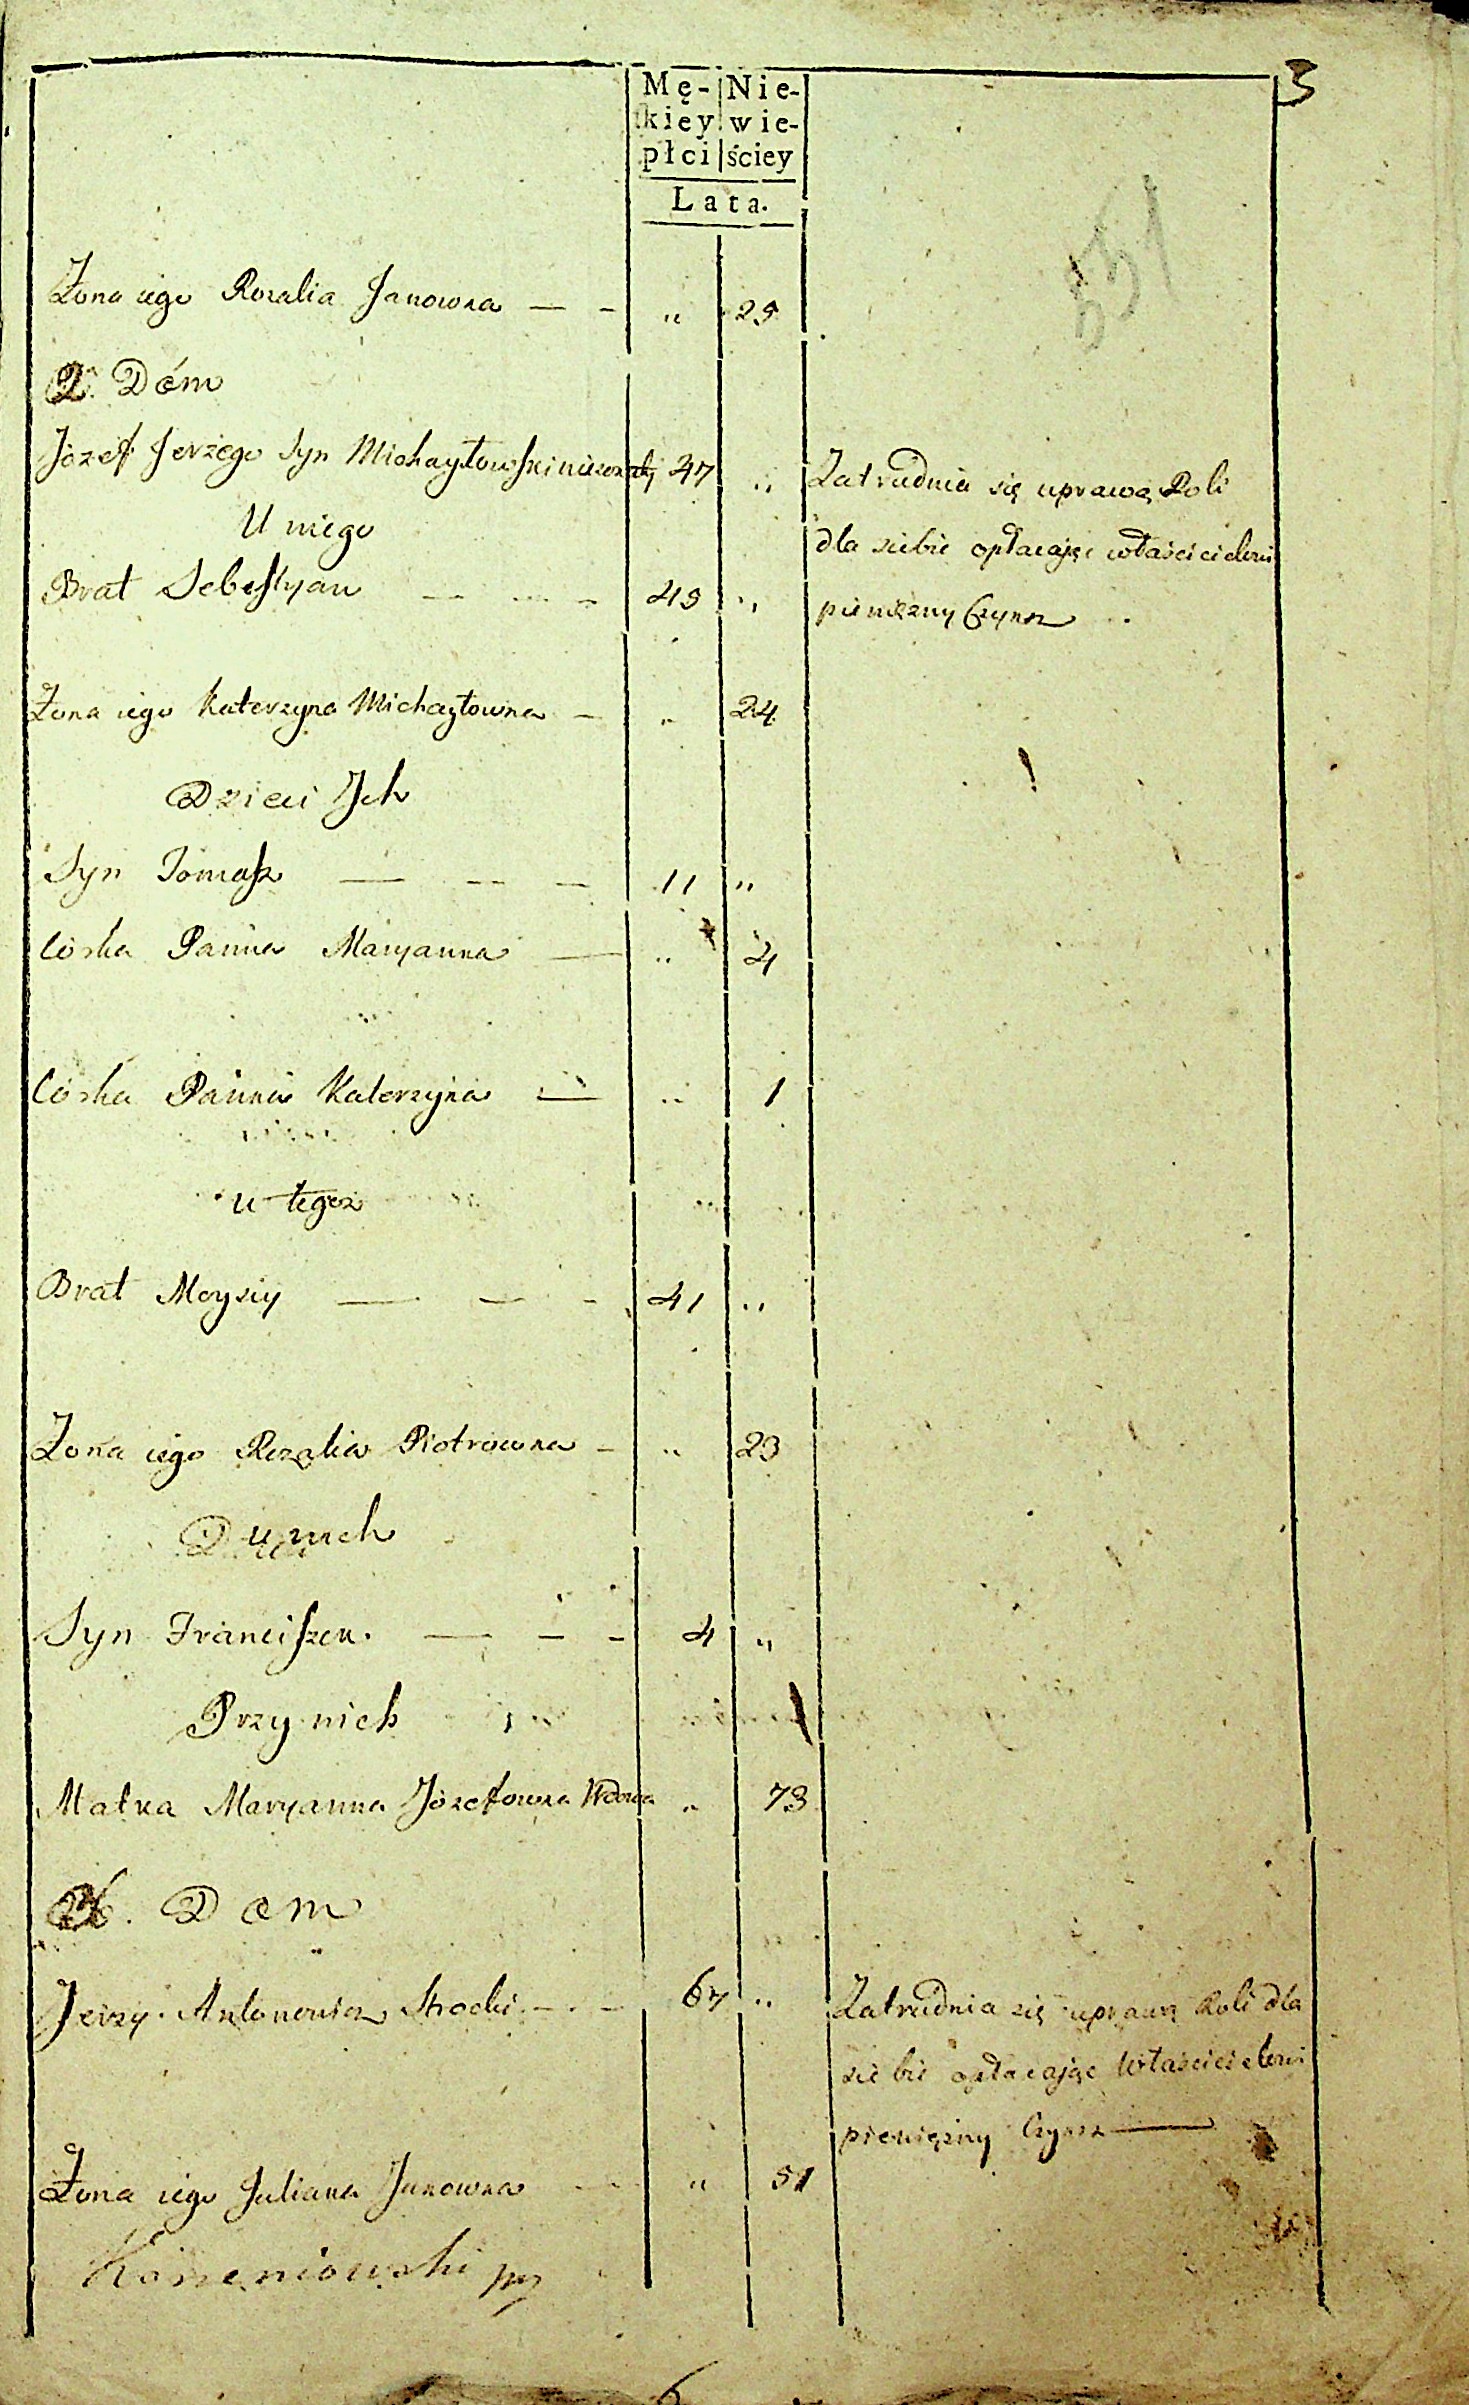 3
Mę- Nie-
skiey wie-
płci ściey
Lata.
551
Żona iego Rozalia Janowna — - „ 25
2. Dóm
Józef Jerzego Syn Michayłowski nieżonaty 47 „ Zatrudnia się uprawą Roli
U niego dla siebie opłacaiąc właścicielowi
Brat Sebestyan — — - 45 „ pieniężny Czynsz
Żona iego Katerzyna Michayłowna - „ 24
Dzieci Ich
Syn Tomasz — — - 11 „
Córka Panna Maryanna — „ 4
Córka Panna Katerzyna — „ 1
u tegoż
Brat Moysiy — — - 41 „
Żona iego Rozalia Piotrowna - „ 23
U nich
Syn Franciszek. — - - 4 „
Przy nich
Matka Maryanna Józefowna Wdowa „ 73
Dom
Jerzy Antonowicz Strocki - - 67 „ Zatrudnia się uprawą Roli dla
siebie opłacaiąc Właścicielowi
pieniężny Czynsz —
Żona iego Juliana Janowna - - „ 51
Korzeniowski